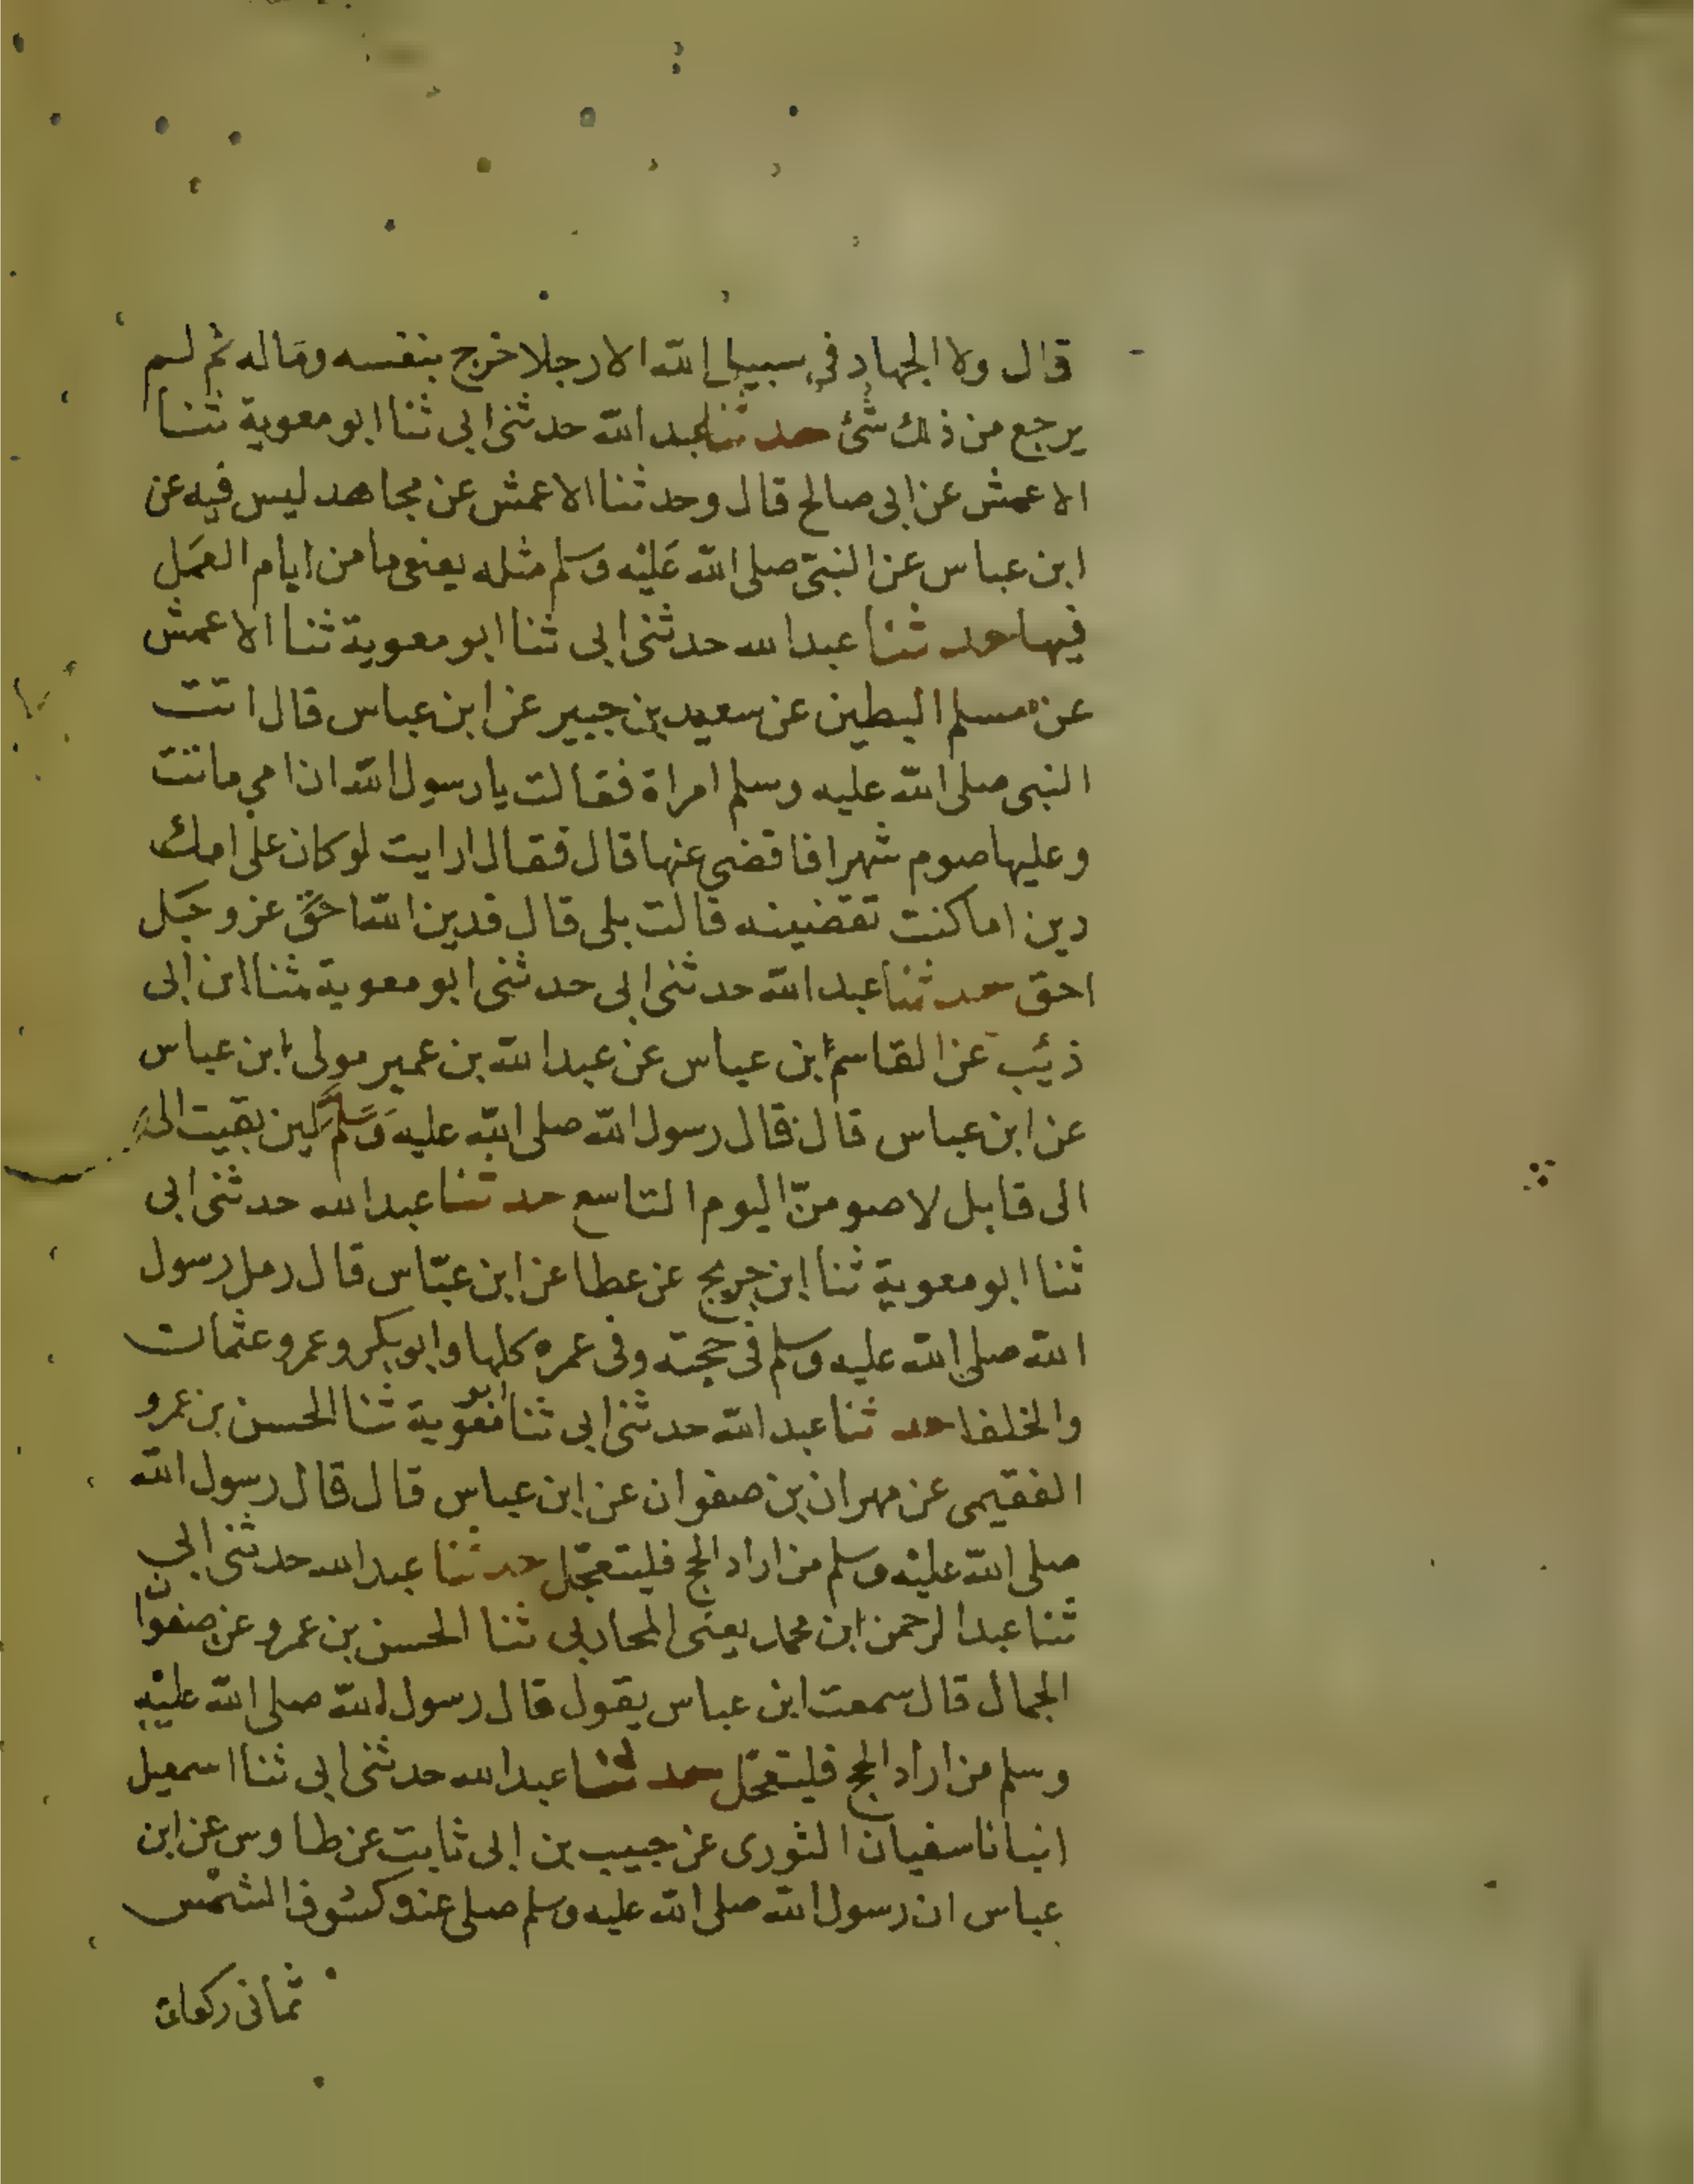 قال ولا الجهاد في سبيل الله الا رجلا خرج بنفسه وماله ثم لم
يرجع من ذلك شئ حدثنا عبد الله حدثنى ابى ثنا ابو معوية ثنا
الاعمش عن ابى صالح قال وحدثنا الاعمش عن مجاهد ليس فيه عن
ابن عباس عن النبى صلى الله عليه وسلم مثله يعنى ما من ايام العمل
فيها حدثنا عبد الله حدثنى ابى ثنا ابو معوية ثنا الاعمش
عن مسلم البطين عن سعيد بن جبير عن ابن عباس قال اتت
النبى صلى الله عليه وسلم امراة فقالت يا رسول الله ان امي ماتت
وعليها صوم شهر افاقضى عنها قال فقال ارايت لو كان على امك
دين اما كنت تقضينه قالت بلى قال فدين الله احق عز وجل
احق حدثنا عبد الله حدثنى ابى حدثنى ابو معوية ثنا ابن ابى
ذئب عن القاسم ابن عباس عن عبد الله بن عمير مولى ابن عباس
عن ابن عباس قال قال رسول الله صلى الله عليه وسلم لين بقيت الى
الى قابل لاصومنّ اليوم التاسع حدثنا عبد الله حدثنى ابى
ثنا ابو معوية ثنا ابن جريج عن عطا عن ابن عبّاس قال رمل رسول
الله صلى الله عليه وسلم فى حجته وفى عمره كلها وابو بكر وعمر وعثمان
والخلفا حدثنا عبد الله حدثنى ابى ثنا ابو معوية ثنا الحسن بن عمرو
الفقيمى عن مهران بن صفوان عن ابن عباس قال قال رسول الله
صلى الله عليه وسلم من اراد الحج فليتعجّل حدثنا عبد الله حدثنى ابى
ثنا عبد الرحمن ابن محمد يعنى المحاربى ثنا الحسن بن عمرو عن صفوان
الجمال قال سمعت ابن عباس يقول قال رسول الله صلى الله عليه
وسلم من اراد الحج فليتعجّل حدثنا عبد الله حدثنى ابى ثنا اسمعيل
انبانا سفيان الثورى عن حبيب بن ابى ثابت عن طاوس عن ابن
عباس ان رسول الله صلى الله عليه وسلم صلى عند كسوف الشمس
ثمانى ركعات